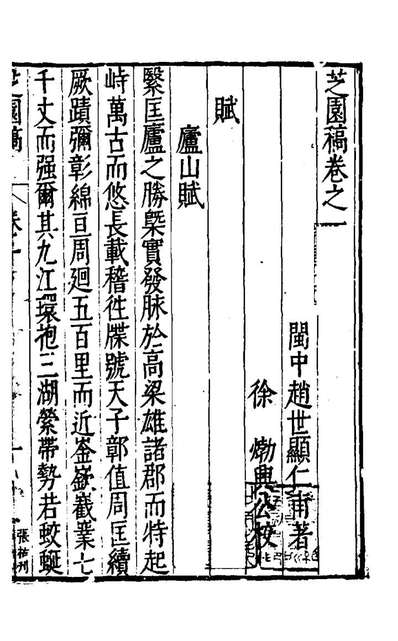 芝園稿卷之一
閩中趙世顯仁甫著
徐𤊹興公校
賦
廬山賦
繄匡廬之勝槩實發脉於高梁雄諸郡而特起
峙萬古而悠長載稽徃牒號天子鄣值周匡續
厥蹟彌彰綿亘周廻五百里而近崟嶔嶻嶪七
千丈而强爾其九江環袍三湖縈帶勢若蛟蜒
芝園稿
卷之一
一
張祐刊